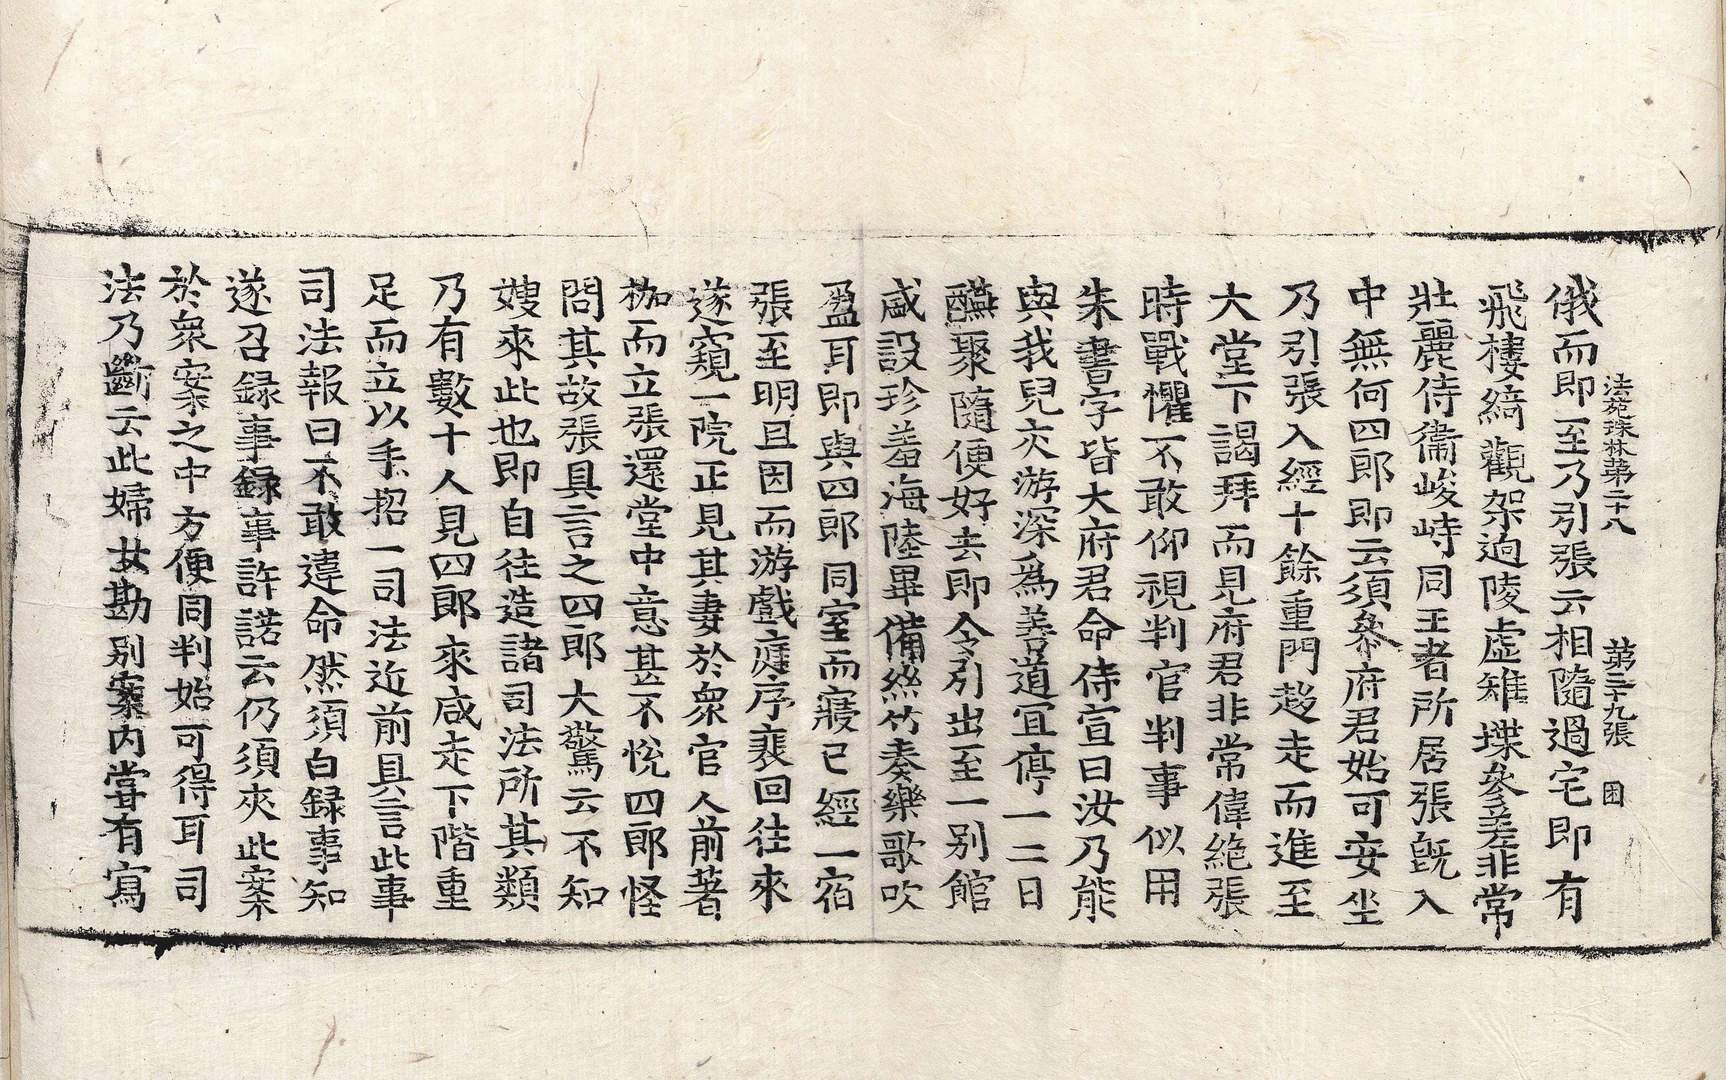 法苑珠林第二十八 第三十九張 困
俄而即至乃引張云相隨過宅即有
飛樓綺觀架迥陵虛雉堞參差非常
壯麗侍衞峻峙同王者所居張旣入
中無何四郎即云須參府君始可安坐
乃引張入經十餘重門趍走而進至
大堂下謁拜而見府君非常偉絶張
時戰懼不敢仰視判官判事似用
朱書字皆大府君命侍宣曰汝乃能
與我兒交游深爲善道冝停一二日
醼聚隨便好去即令引出至一別館
咸設珍羞海陸畢備絲竹奏樂歌吹
盈耳即與四郎同室而寢已經一宿
張至明旦因而游戲𨓍序裵回往來
遂窺一院正見其妻於衆官人前著
枷而立張還堂中意甚不悅四郎怪
問其故張具言之四郎大驚云不知
嫂來此也即自往造諸司法所其類
乃有數十人見四郎來咸走下階重
足而立以手招一司法近前具言此事
司法報曰不敢違命然須白録事知
遂召録事録事許諾云仍須夾此案
於衆案之中方便同判始可得耳司
法乃斷云此婦女勘別案內嘗有寫